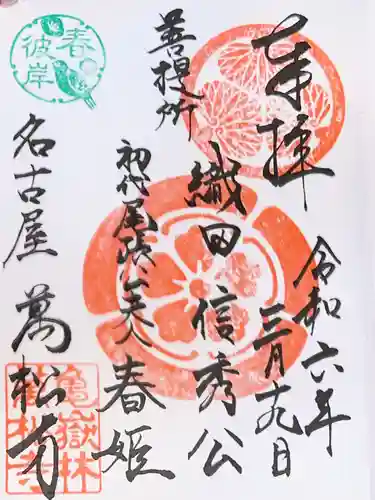 奉拝
令和六年
三月九日
織田信秀公
菩提所
初代尾張公夫人
春姫
名古屋 萬松寺
春
彼岸
亀嶽林
萬松寺